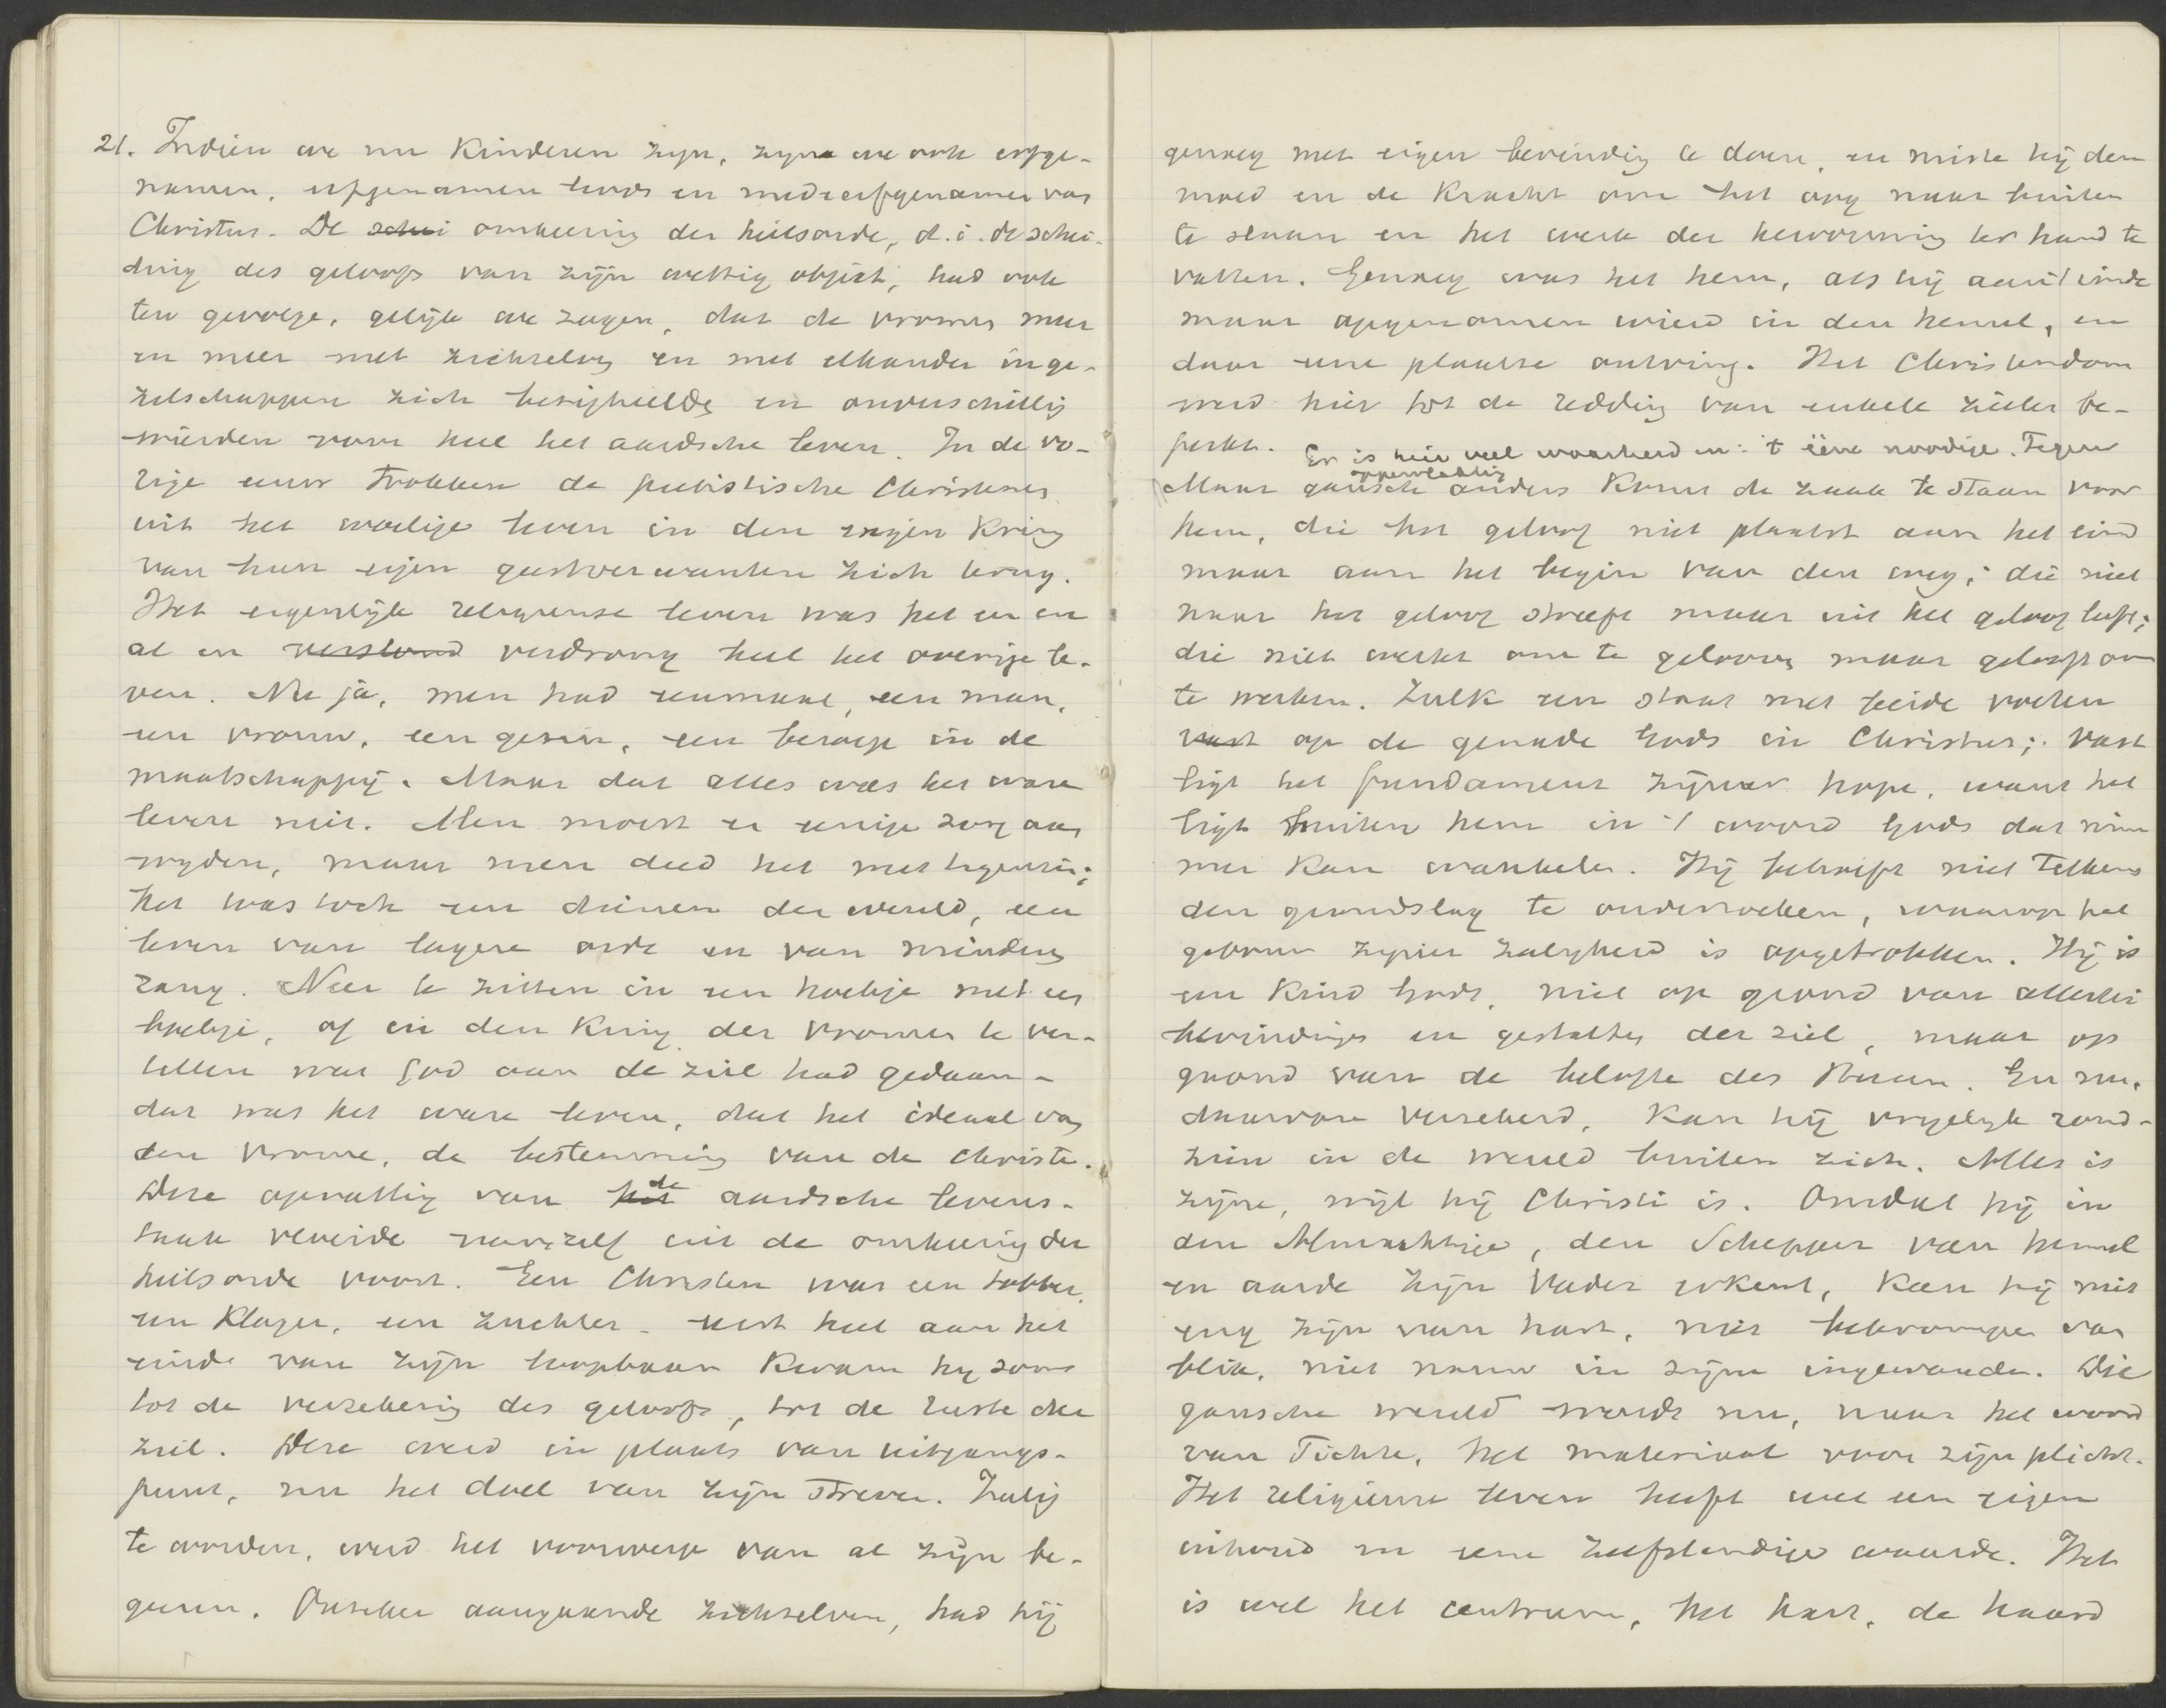 21. Indien we nu Kinderen zijn, zijn we ook erfge-
namen, erfgenamen Gods en medeerfgenamen van
Christus. De schei omkeering der heilsorde, d.i. de schei-
ding des geloofs van zijn wettig object, had ook
ten gevolge, gelijk we zagen, dat de vromen meer
en meer met zichzelven en met elkander in ge-
zelschappen zich bezighielden en onverschillig
wierden voor heel het aardsche leven. In de vo-
rige eeuw trokken de pietistische Christenen
uit het woelige leven in den engen Kring
van hun eigen geestverwanten zich terug.
Het eigenlijk religieuse leven was het een en
al en verslond verdrong heel het overige le-
ven. Nu ja, men had eenmaal, een man,
een vrouw, een gezin, een beroep in de
maatschappij. Maar dat alles was het ware
leven niet. Men moest er eenige zorg aan
wijden, maar men deed het met tegenzin;
het was toch een dienen der wereld, een
leven van lagere orde en van minderen
rang. Neer te zitten in een hoekje met een
boekje, of in den Kring der vromen te ver-
tellen wat God aan de ziel had gedaan -
dat was het ware leven, dat het ideaal van
den vrome, de bestemming van de Christe.
Deze opvatting van het de aardsche levens-
taak vloeide vanzelf uit de omkeering der
heilsorde voort. Een Christen was een tobber,
een Klager, een zuchter - eerst heel aan het
einde van zijn loopbaan Kwam hij soms
tot de verzekering des geloofs, tot de ruste der
ziel. Deze werd in plaats van uitgangs-
punt, nu het doel van zijn streven. Zalig
te worden, werd het voorwerp van al zijn be-
geeren. Onzeker aangaande zichzelven, had hij
genoeg met eigen bevinding te doen, en miste hij den
moed en de Kracht om het oog naar buiten
te slaan en het werk der hervorming ter hand te
vatten. Genoeg was het hem, als hij aan 't einde
maar opgenomen wierd in den hemel, en
daar eene plaatse ontving. Het Christendom
werd hier tot de redding van enkele zielen be-
perkt. Er is hier veel waarheid in: 't ééne noodige. Tegen
oppervlakkig
Maar gansch anders Komt de zaak te staan voor
hem, die het geloof niet plaatst aan het eind
maar aan het begin van den weg; die niet
naar het geloof streeft maar uit het geloof leeft;
die niet werkt om te gelooven maar gelooft om
te werken. Zulk een staat met beide voeten
vast op de genade Gods in Christus; vast
ligt het fundament zijner hope, want het
ligt buiten hem in 't woord Gods dat nim-
mer Kan wankelen. Hij behoeft niet telkens
den grondslag te onderzoeken, waarop het
gebouw zijner zaligheid is opgetrokken. Hij is
een Kind Gods, niet op grond van allerlei
bevindingen en gestalten der ziel, maar op
grond van de belofte des Heeren. En nu,
daarvan verzekerd, Kan hij vrijelijk rond-
zien in de wereld buiten zich. Alles is
zijne, wijl hij Christi is. Omdat hij in
den Almachtige, den Schepper van hemel
en aarde zijn Vader erkent, Kan hij niet
eng zijn van hart, niet bekrompen van
blik, niet nauw in zijne ingewanden. Die
gansche wereld wordt nu, naar het woord
van Fichte, het materiaal voor zijn plicht.
Het religieuse leven heeft wel een eigen
inhoud en eene zelfstandige waarde. Het
is wel het centrum, het hart, de haard